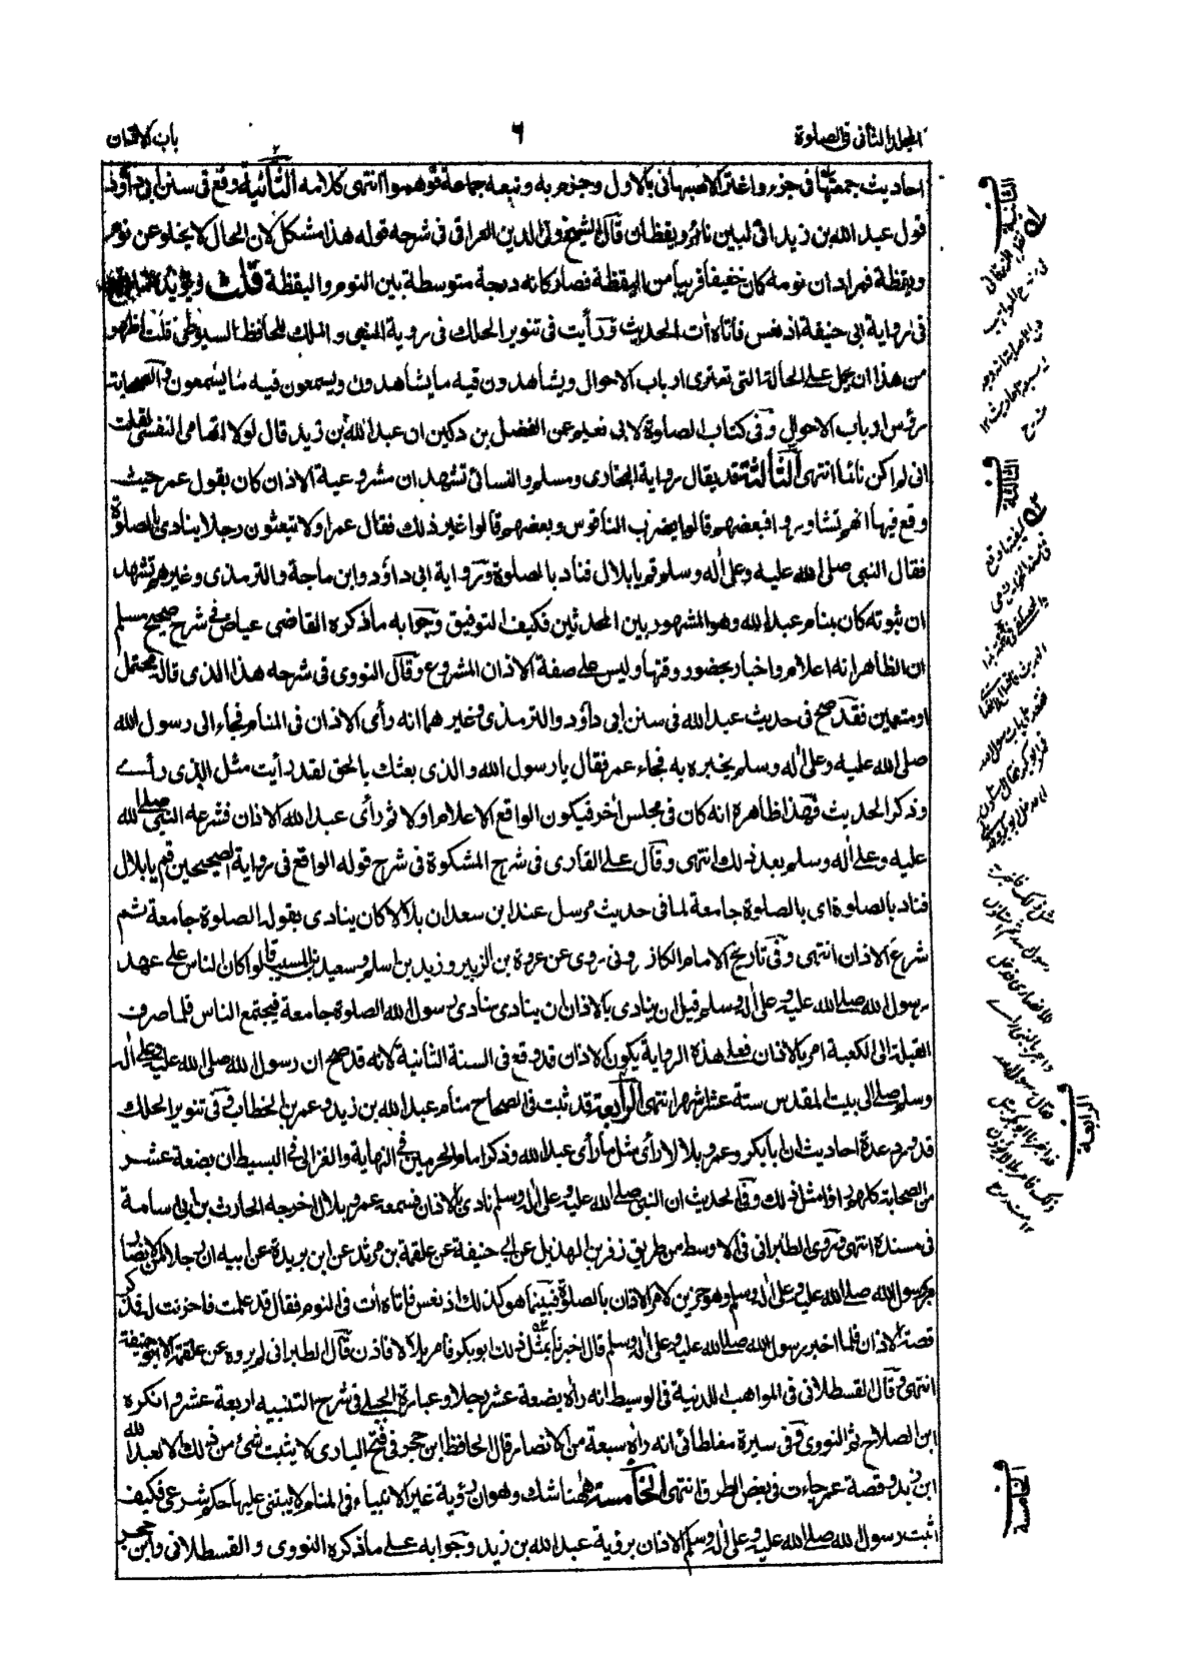 المجلد الثاني في الصلوة
٦
باب الاذان
احاديث جمعتها في جزء واغتر الاصبهاني بالاول وجزم به وتبعه جماعة فوهموا انتهى كلامه الثانية وقع في سنن ابي داؤد
قول عبد الله بن زيد اني لبين نائم ويقظان قال الشيخ ولي الدين العراقي في شرحه قوله هذا مشكل لان الحال لا يخلو عن نوم
ويقظة فمراده ان نومه كان خفيفا قريبا من اليقظة فصار كانه درجة متوسطة بين النوم واليقظة قلت ويؤيده
في رواية ابي حنيفة اذ نعس فأتاه أت الحديث ورأيت في تنوير الحلك في روية النبي والملك للحافظ السيوطي قلت اظهر
من هذا ان يحمل على الحالة التي تعتري ارباب الاحوال ويشاهدون فيه ما يشاهدون ويسمعون فيه ما يسمعون والصحابة
رؤس ارباب الاحوال وفي كتاب الصلوة لابي نعيم عن الفضل بن دكين ان عبد الله بن زيد قال لولا اتهامي النفسي لقلت
اني لم اكن نائما انتهى الثالثة قد يقال رواية البخاري ومسلم والنسائي تشهد ان مشروعية الاذان كان بقول عمر حيث
وقع فيها انهم تشاوروا فبعضهم قالوا يضرب الناقوس وبعضهم قالوا غير ذلك فقال عمر اولا تبعثون رجلا ينادي بالصلوة
فقال النبي صلى الله عليه وعلى أله وسلم قم يا بلال فناد بالصلوة ورواية ابي داؤد وابن ماجة والترمذي وغيرهم تشهد
ان ثبوته كان بمنام عبد الله وهو المشهور بين المحدثين فكيف التوفيق وجوابه ما ذكره القاضي عياض في شرح صحيح مسلم
ان الظاهر انه اعلام واخبار بحضور وقتها وليس على صفة الاذان المشروع وقال النووي في شرحه هذا الذي قاله محتمل
او متعين فقد صح في حديث عبد الله في سنن ابي داؤد والترمذي وغيرهما انه رأى الاذان في المنام فجاء الى رسول الله
صلى الله عليه وعلى أله وسلم يخبره به فجاء عمر فقال يا رسول الله والذي بعثك بالحق لقد رأيت مثل الذي رأى
وذكر الحديث فهذا ظاهره انه كان في مجلس أخر فيكون الواقع الاعلام اولا ثم رأى عبد الله الاذان فشرعه النبي صلى الله
عليه وعلى أله وسلم بعد ذلك انتهى وقال علي القاري في شرح المشكوة في شرح قوله الواقع في رواية الصحيحين قم يا بلال
فناد بالصلوة اي بالصلوة جامعة لما في حديث مرسل عند ابن سعد ان بلالا كان ينادي بقوله الصلوة جامعة ثم
شرع الاذان انتهى وفي تاريخ الامام الكازروني روى عن عروة بن الزبير وزيد بن اسلم وسعيد بن المسيب قالوا كان الناس على عهد
رسول الله صلى الله عليه وعلى أله وسلم قبل ان ينادى بالاذان ان ينادي منادي رسول الله الصلوة جامعة فيجتمع الناس فلما صرف
القبلة الى الكعبة امر بالاذان فعلى هذه الرواية يكون الاذان قد وقع في السنة الثانية لانه قد صح ان رسول الله صلى الله عليه وعلى أله
وسلم صلى الى بيت المقدس ستة عشر شهرا انتهى الرابعة قد ثبت في الصحاح منام عبد الله بن زيد وعمر بن الخطاب وفي تنوير الحلك
قد ورد عدة احاديث ان ابا بكر وعمر وبلالا رأى مثل ما رأى عبد الله وذكر امام الحرمين في النهاية والغزالي في البسيط ان بضعة عشر
من الصحابة كلهم رؤا مثل ذلك وفي الحديث ان النبي صلى الله عليه وعلى أله وسلم نادى بالاذان فسمعه عمر وبلال اخرجه الحارث بن ابي سامة
في مسنده انتهى وروى الطبراني في الاوسط من طريق زفر بن الهذيل عن ابي حنيفة عن علقمة بن مرثد عن ابن بريدة عن ابيه ان رجلا من الانصار
مر برسول الله صلى الله عليه وعلى أله وسلم وهو حزين لامر الاذان بالصلوة فبينما هو كذلك اذ نعس فأتاه أت في النوم فقال قد علمت فاحزنت له فذكر
قصة الاذان فلما اخبر رسول الله صلى الله عليه وعلى أله وسلم قال اخبرنا بمثل ذلك ابو بكر فأمر بلالا فاذن قال الطبراني لم يروه عن علقمة الا ابو حنيفة
انتهى وقال القسطلاني في المواهب اللدنية في الوسيط انه رأه بضعة عشر رجلا وعبارة الجيلي في شرح التنبيه اربعة عشر وانكره
ابن الصلاح ثم النووي وفي سيرة مغلطائي انه رأه سبعة من الانصار قال الحافظ ابن حجر في فتح الباري لا يثبت شئ من ذلك الا لعبد الله
ابن زيد وقصة عمر جاءت في بعض الطرق انتهى الخامسة ههنا شك وهو ان رؤية غير الانبياء في المنام لا يبتني عليها حكم شرعي فكيف
اثبت رسول الله صلى الله عليه وعلى أله وسلم الاذان برؤية عبد الله بن زيد وجوابه على ما ذكره النووي والقسطلاني وابن حجر
الثانية
الثالثة
الرابعة
الخامسة